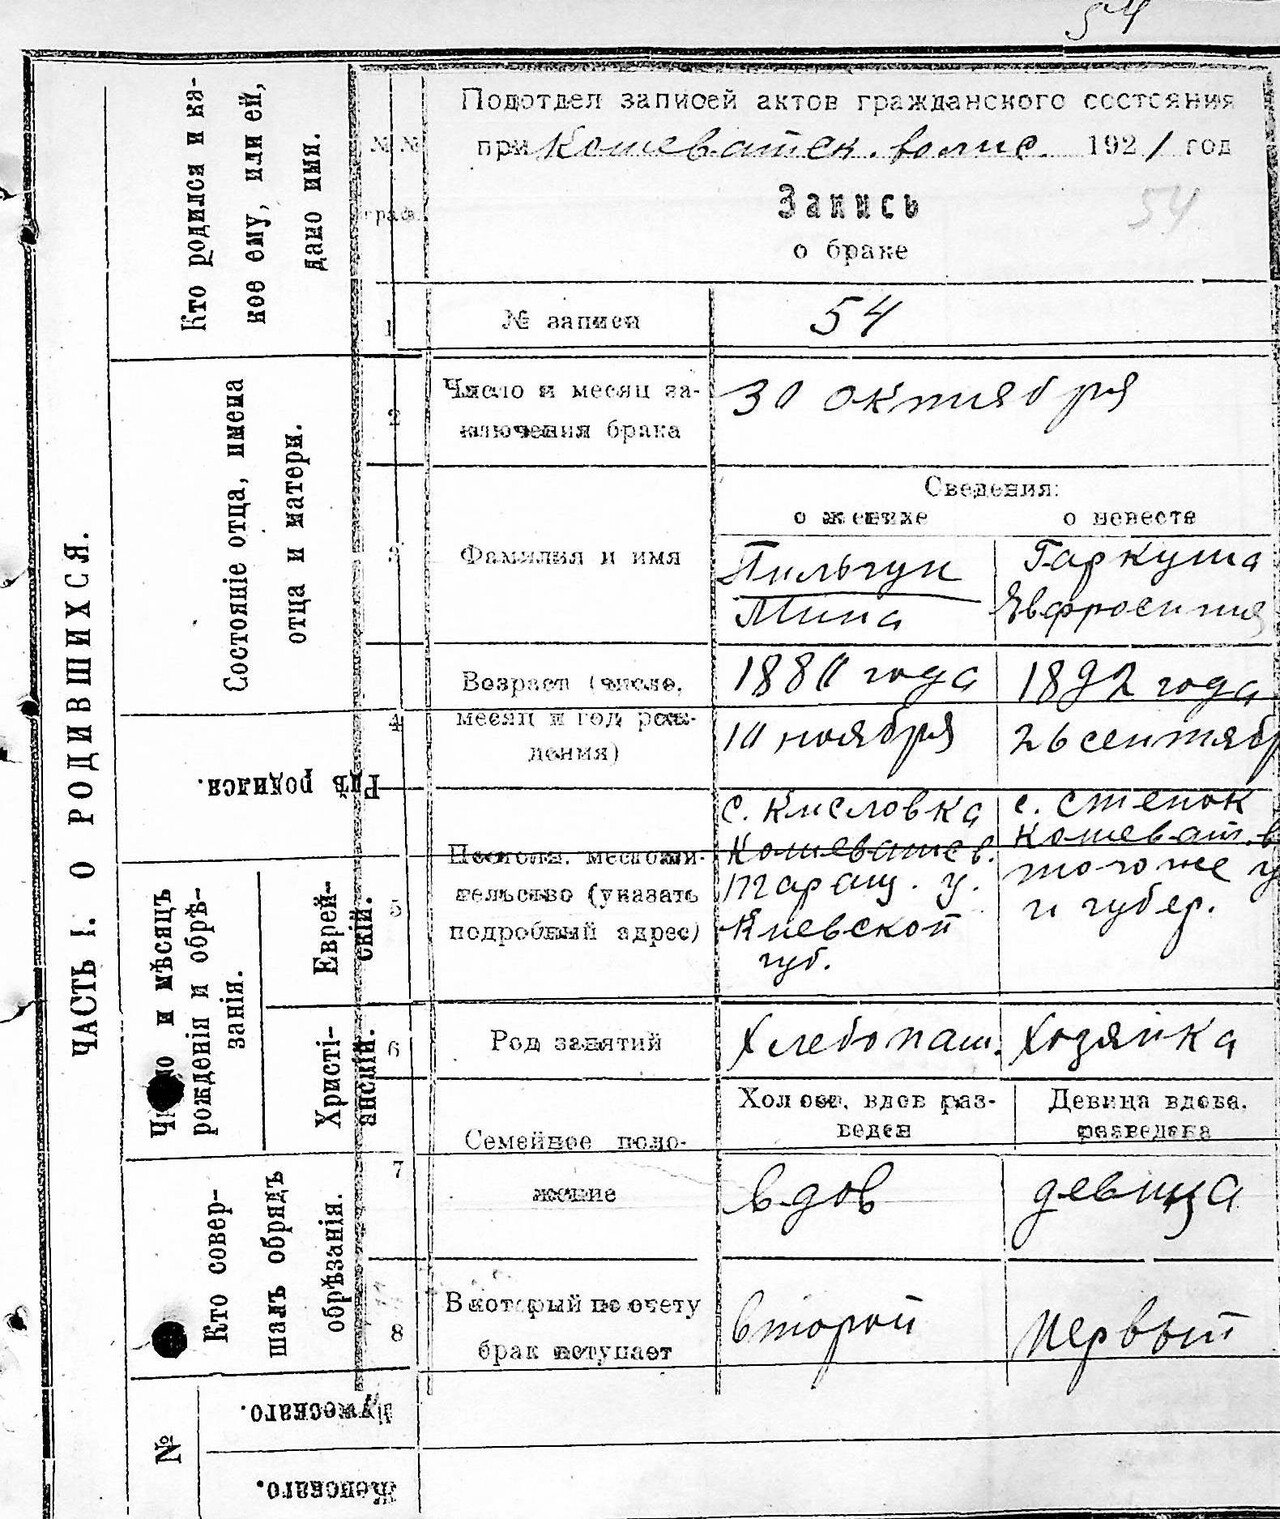 54
ЧАСТЬ I. О РОДИВШИХСЯ.
Кто родился и ка-
кое ему, или ей,
дано имя.
Состояніе отца, имена
отца и матери.
Гдѣ родился.
Число и мѣсяцъ
рожденія и обрѣ-
занія.
Еврей-
скій.
Христі-
анскій.
Кто совер-
шалъ обрядъ
обрѣзанія.
№
Мужескаго.
Женскаго.
№№
граф.
Подотдел записей актов гражданского состояния
при Кошеватск. волис. 1921 год
Запись
54
о браке
1
№ записи
54
2
Число и месяц за-
ключения брака
30 октября
Сведения:
о женихе
о невесте
3
Фамилия и имя
Пильгун
Мина
Гаркуша
Евфросиния
4
Возраст (число,
месяц и год рож-
дения)
1880 года
10 ноября
1892 года
26 сентябр
5
Постоян. местожи-
тельство (указать
подробный адрес)
с. Кисловка
Кошеватск. в.
Таращ. у.
Киевской
губ.
с. Степок
Кошеват. в
того же у
и губер.
6
Род занятий
Хлебопаш.
Хозяйка
7
Семейное поло-
жение
Холост, вдов раз-
веден
Девица вдова,
разведена
вдов
девица
8
В который по счету
брак вступает
второй
первый